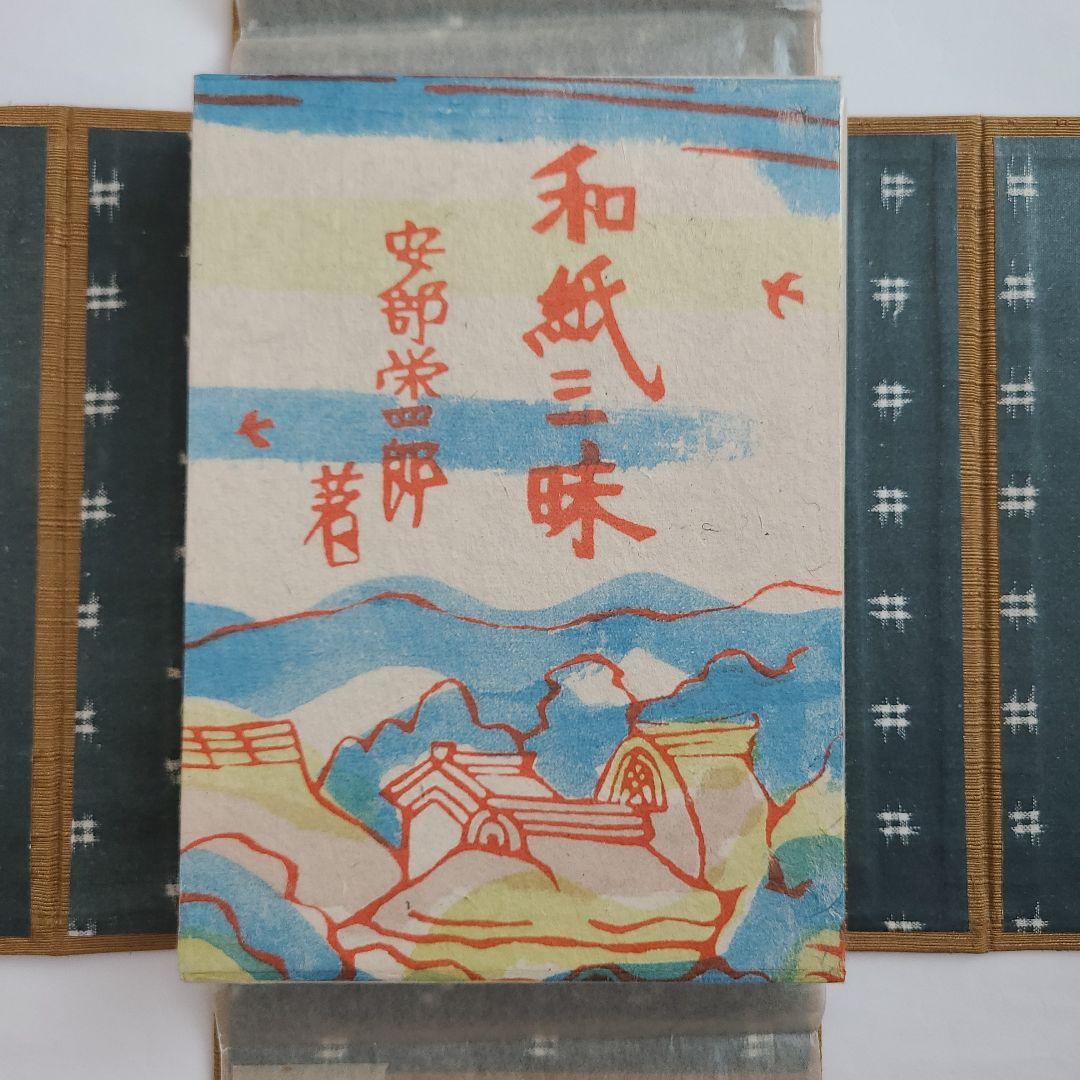 和紙三昧
安部栄四郎
著